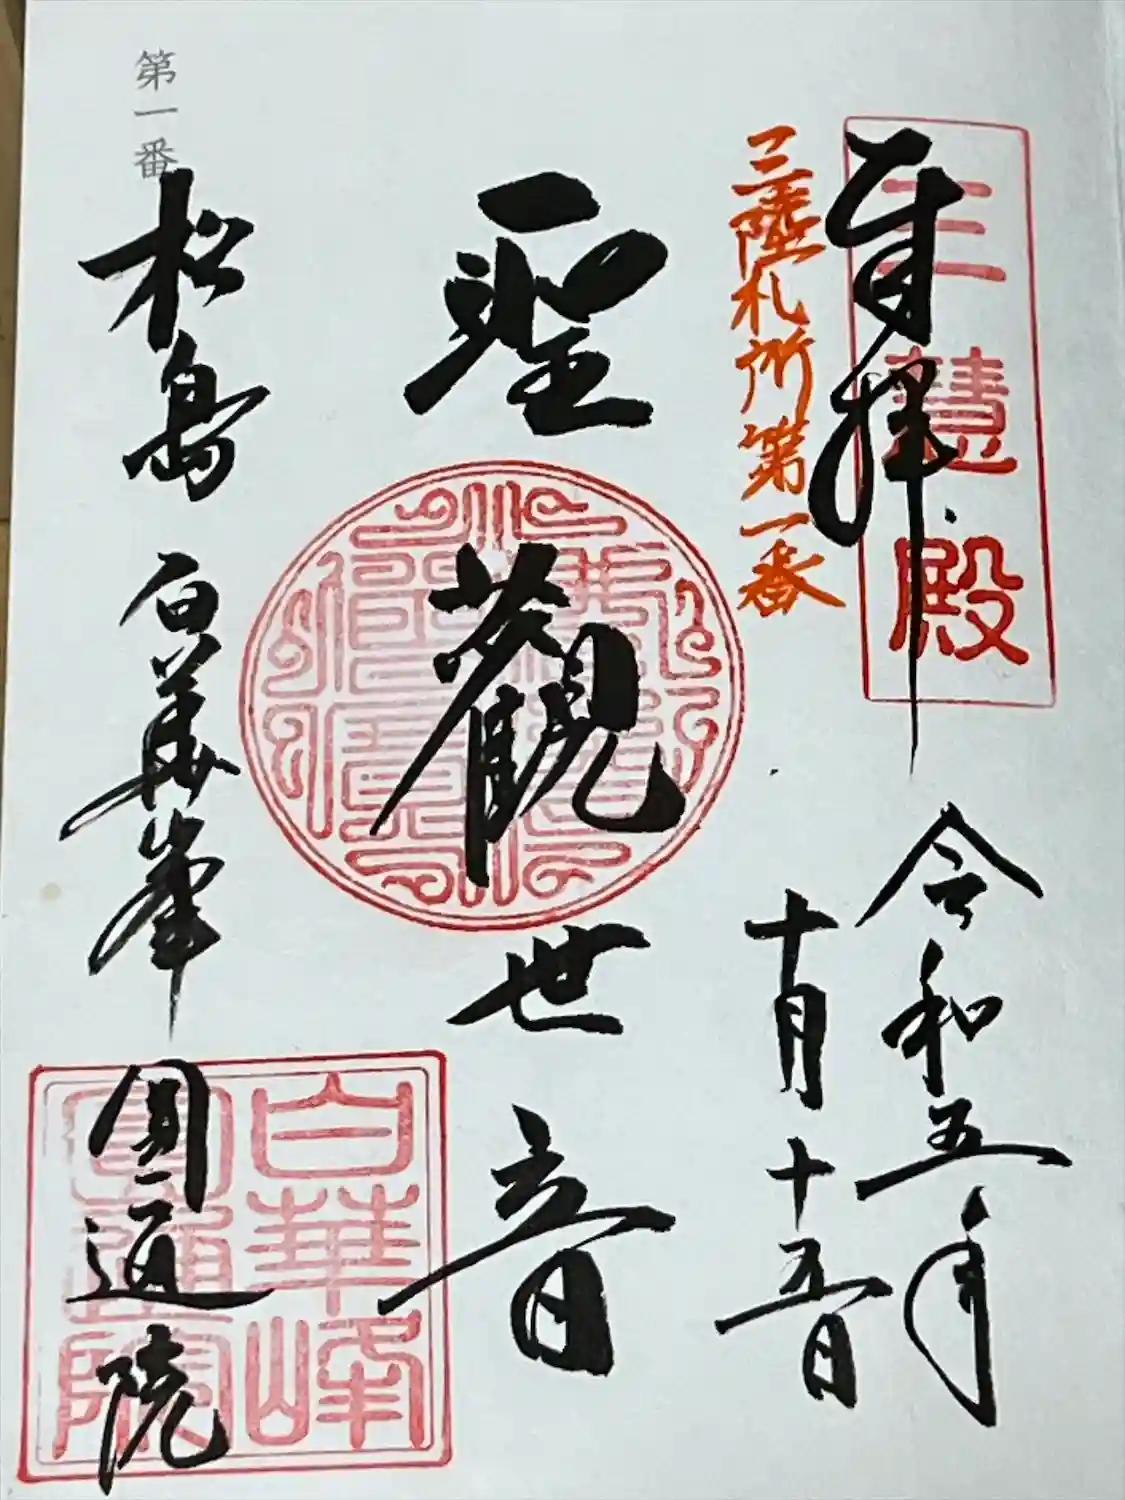 奉拝
三慧殿
令和五年
三陸札所第一番
十月十五日
聖觀世音
第一番
松島 白華峯 圓通院
白華峰
圓通院